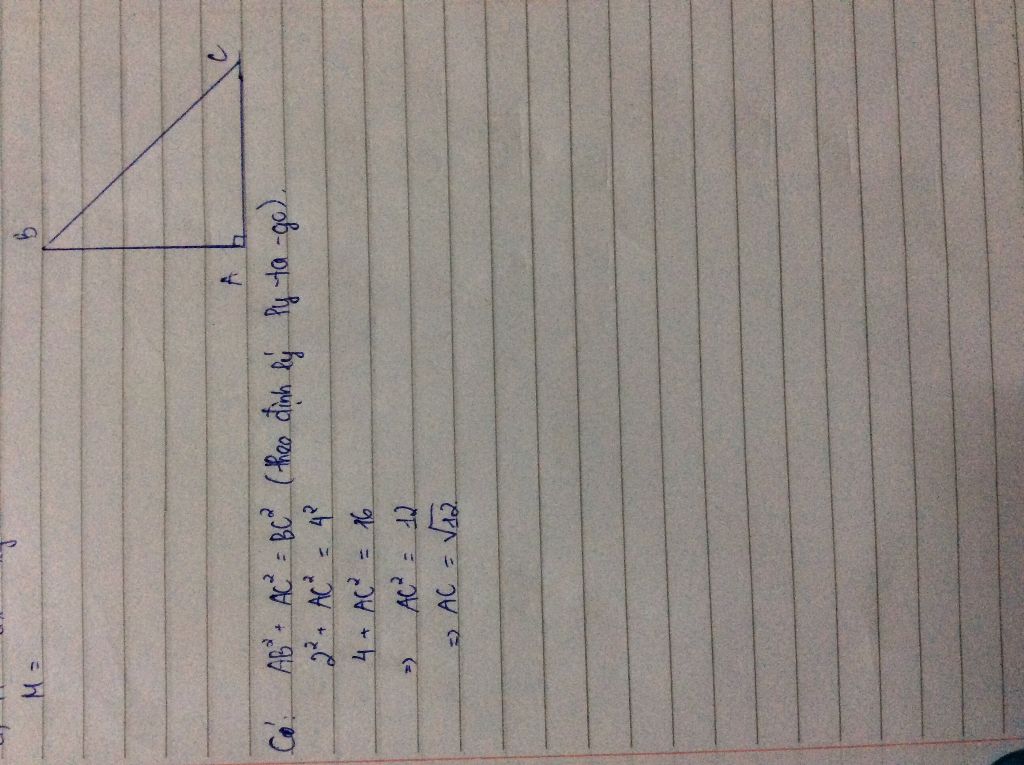 M =
B
A
C
Có: AB² + AC² = BC² (theo định lý Py-ta-go).
2² + AC² = 4²
4 + AC² = 16
=> AC² = 12
=> AC = √12